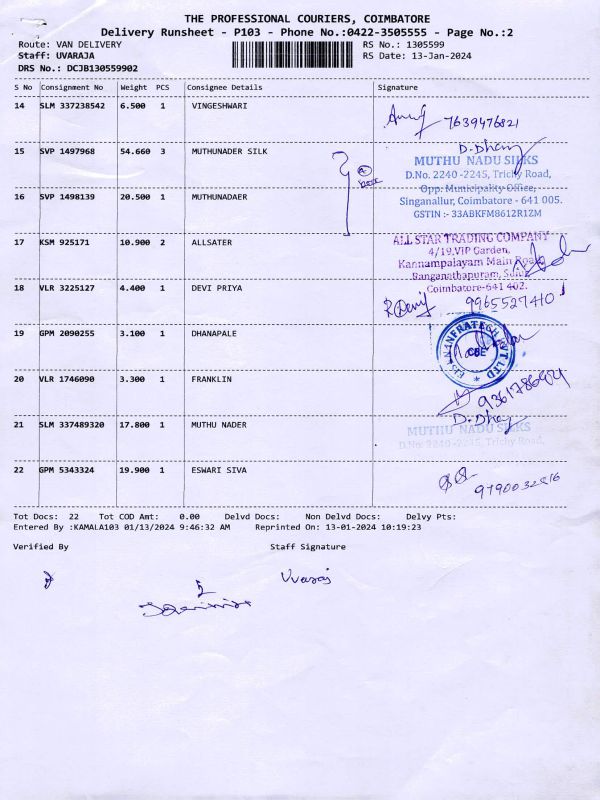 THE PROFESSIONAL COURIERS, COIMBATORE
Delivery Runsheet - P103 - Phone No.:0422-3505555 - Page No.:2
Route: VAN DELIVERY RS No.: 1305599
Staff: UVARAJA RS Date: 13-Jan-2024
DRS No.: DCJB130559902
S No Consignment No Weight PCS Consignee Details Signature
14 SLM 337238542 6.500 1 VINGESHWARI
7639476821
15 SVP 1497968 54.660 3 MUTHUNADER SILK
D. Dhay
MUTHU NADU SILKS
D.No. 2240 -2245, Trichy Road,
Opp. Municipality Office,
16 SVP 1498139 20.500 1 MUTHUNADAER
Singanallur, Coimbatore - 641 005.
GSTIN :- 33ABKFM8612R1ZM
17 KSM 925171 10.900 2 ALLSATER
ALL STAR TRADING COMPANY
4/19,VIP Garden,
Kannampalayam Main Road,
Ranganathapuram, Sulur
Coimbatore-641 402.
18 VLR 3225127 4.400 1 DEVI PRIYA
9965527410
19 GPM 2090255 3.100 1 DHANAPALE
INFRATECH PVT LTD
CBE
20 VLR 1746090 3.300 1 FRANKLIN
21 SLM 337489320 17.800 1 MUTHU NADER
D. Dhay
MUTHU NADU SILKS
D.No. 2240 -2245, Trichy Road,
22 GPM 5343324 19.900 1 ESWARI SIVA
Tot Docs: 22 Tot COD Amt: 0.00 Delvd Docs: Non Delvd Docs: Delvy Pts:
Entered By :KAMALA103 01/13/2024 9:46:32 AM Reprinted On: 13-01-2024 10:19:23
Verified By Staff Signature
Uvaraj